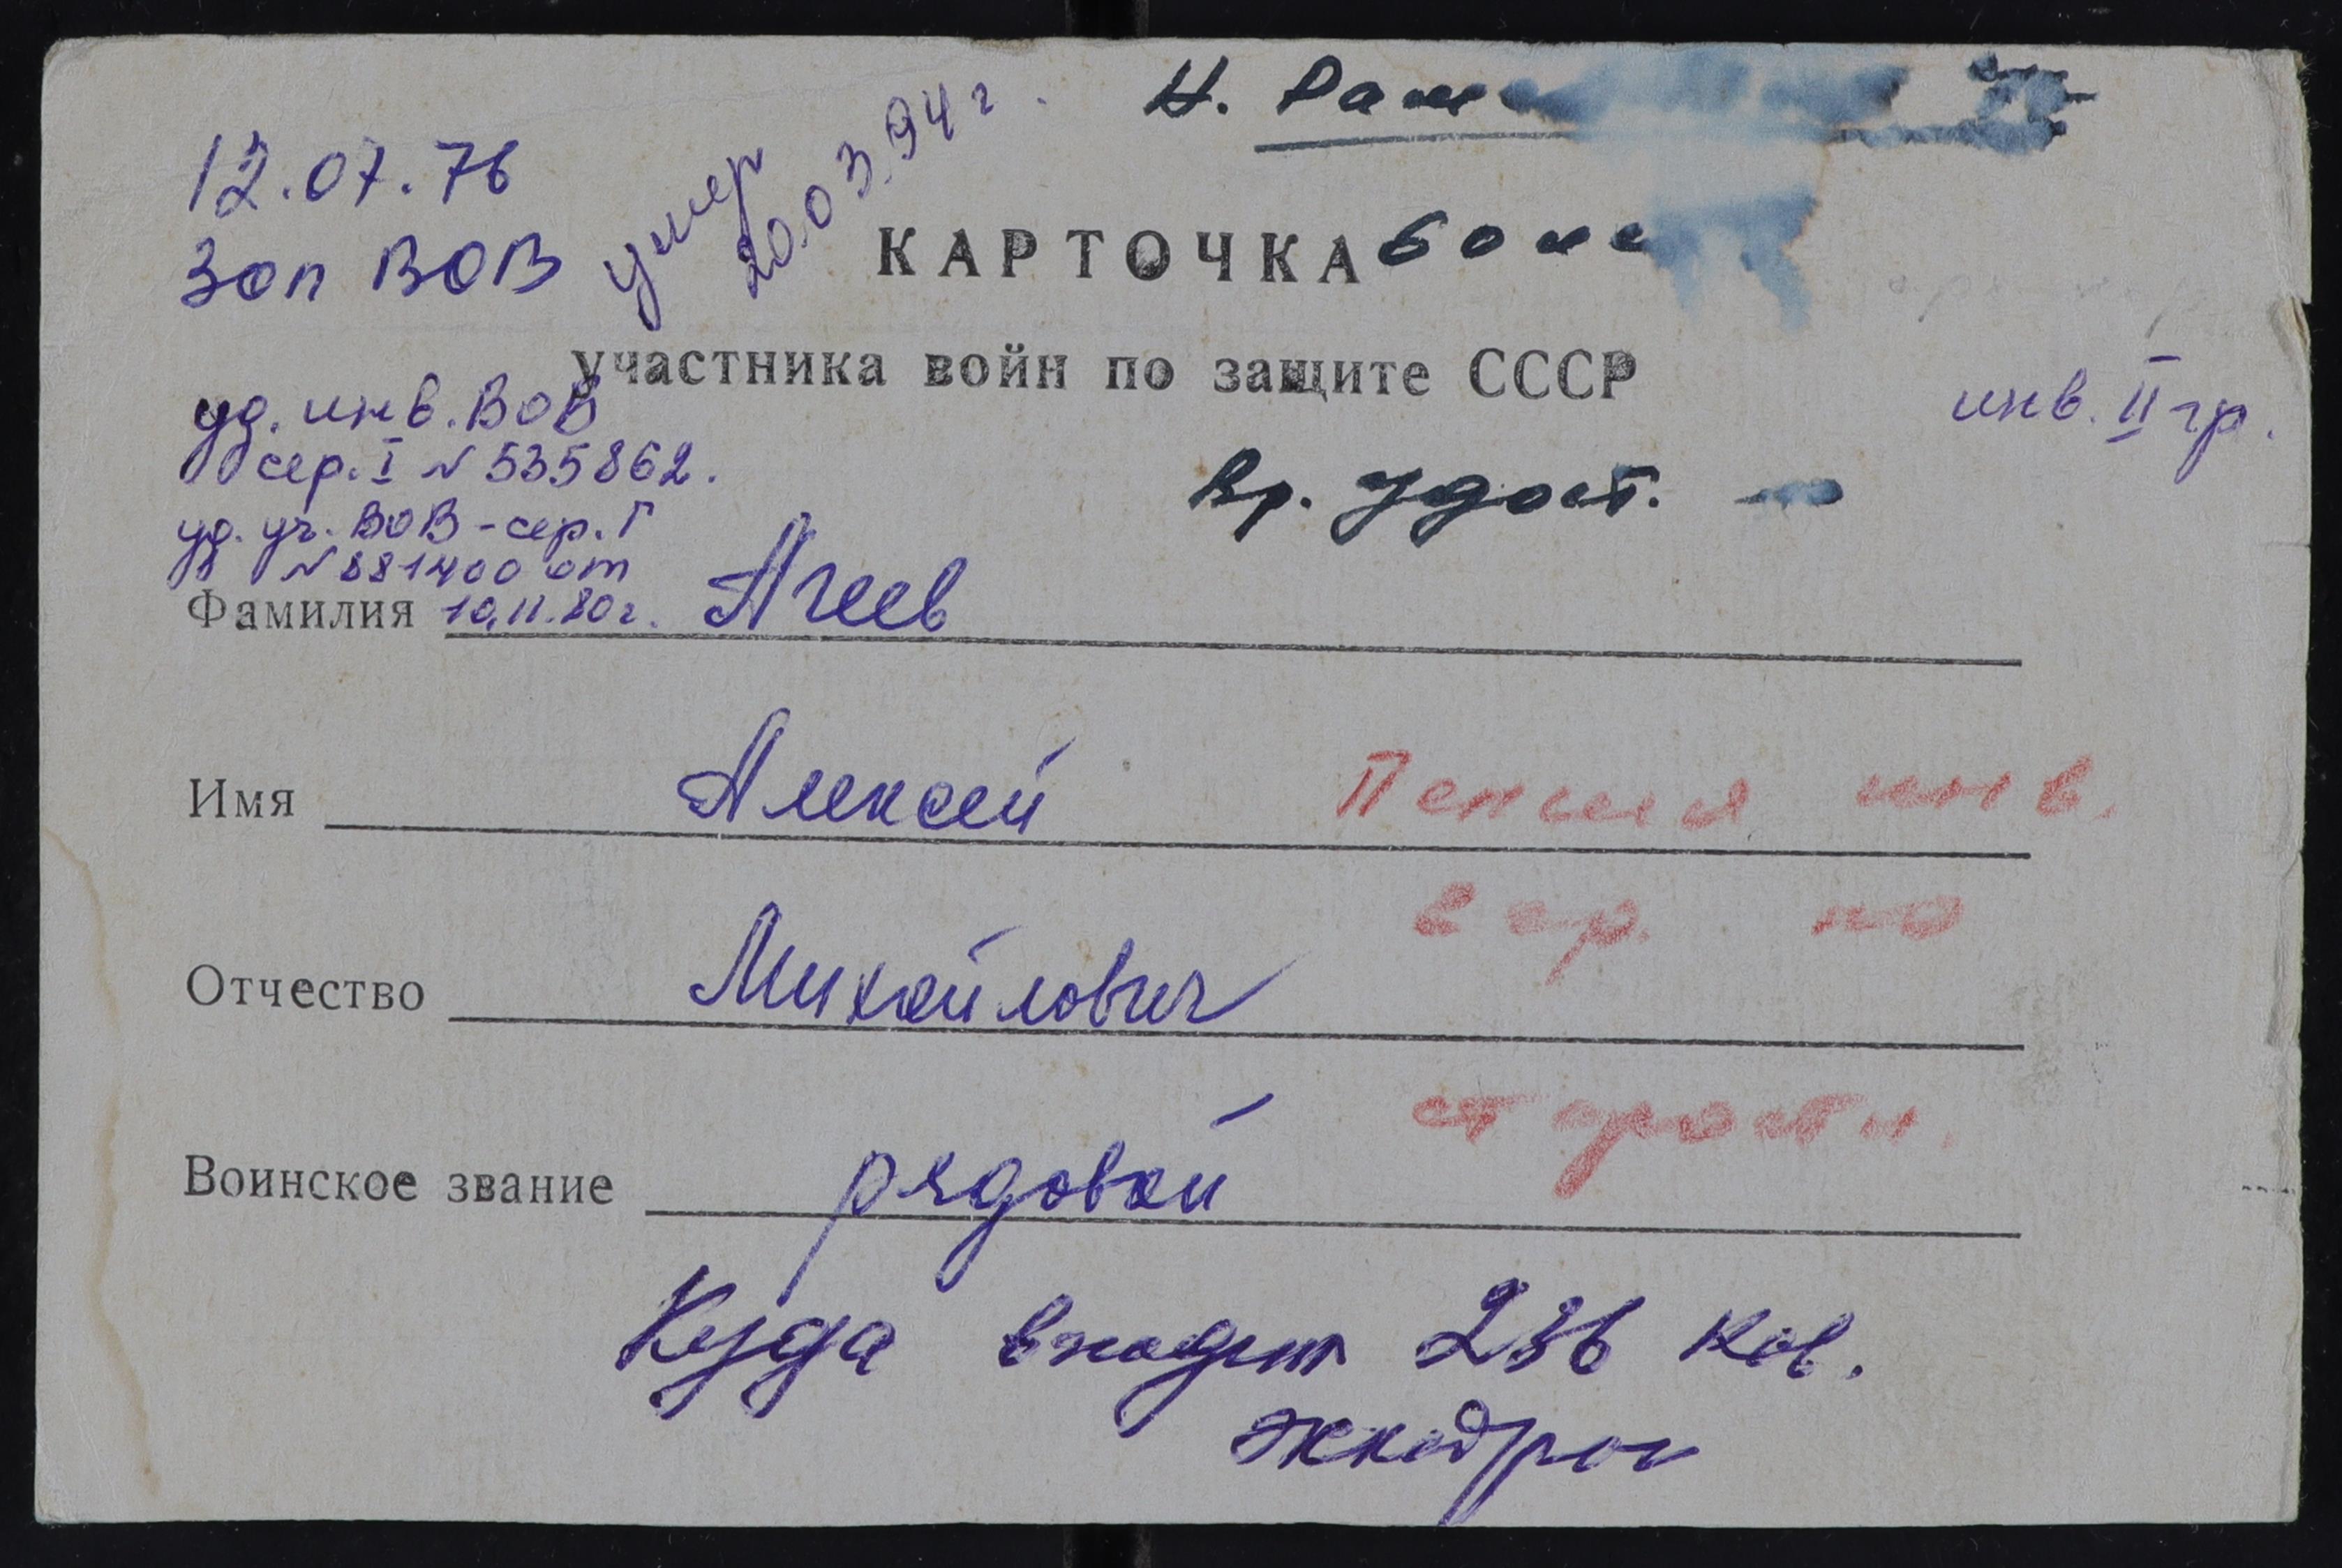 12.07.76
Зоп ВОВ
умер
20.03.94 г.
Н.
КАРТОЧКА
участника войн по защите СССР
инв. II гр.
уд. инв. ВОВ
сер. I № 535862.
уд. уч. ВОВ - сер. Г
№ 881400 от
10.11.80 г.
Вр. удост.
Фамилия Агеев
Имя Алексей
Пенсия инв.
2 гр. по
старости.
Отчество Михайлович
Воинское звание рядовой
Куда входит 236 кав.